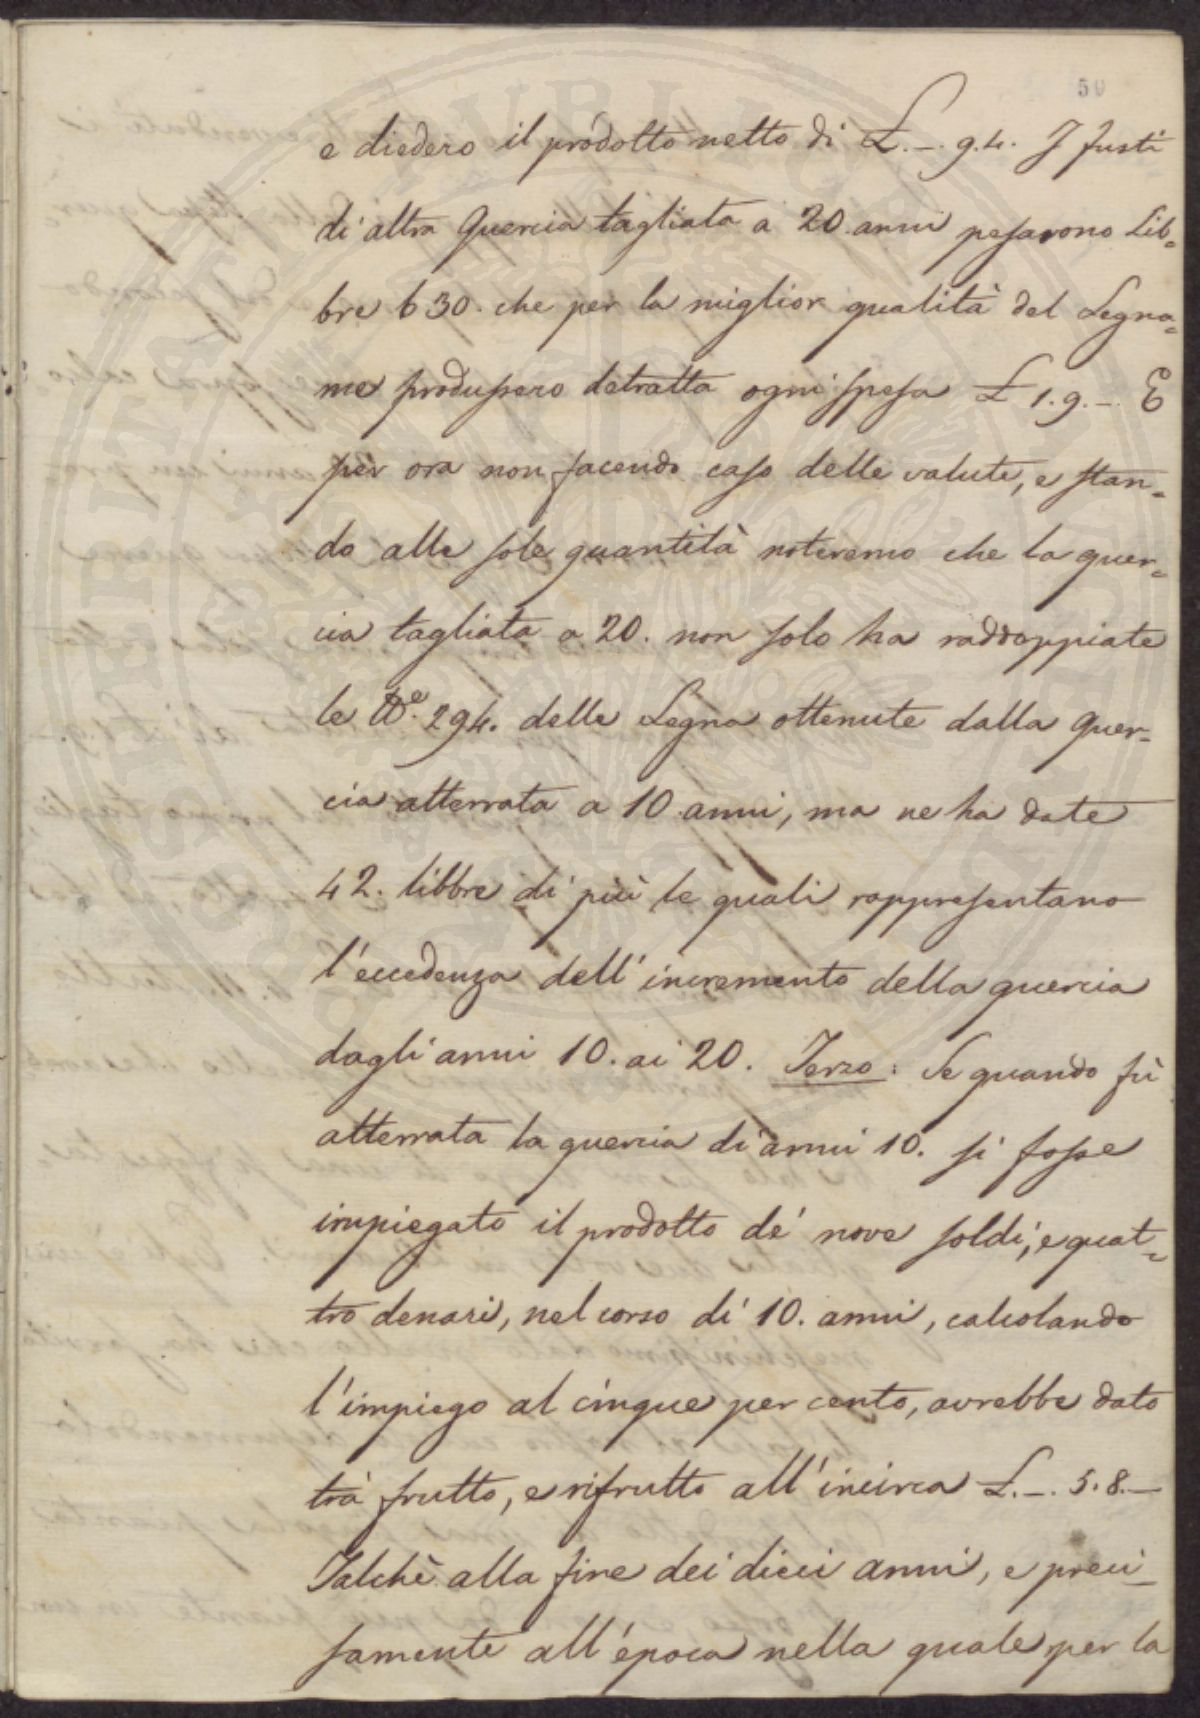 50
e diedero il prodotto netto di £. _. 9.4. I fusti
di altra Quercia tagliata a 20 anni pesarono Lib=
bre 630. che per la miglior qualità del Legna=
me produssero detratta ogni spesa £ 1.9._. E
per ora non facendo caso delle valute, e stan=
do alle sole quantità noteremo che la quer=
cia tagliata a 20. non solo ha raddoppiate
le lbe. 294. delle Legna ottenute dalla Quer=
cia atterrata a 10 anni, ma ne ha date
42. libbre di più le quali rappresentano
l'eccedenza dell'incremento della quercia
dagli anni 10. ai 20. Terzo: Se quando fù
atterrata la quercia di anni 10. si fosse
impiegato il prodotto de' nove soldi, e quat=
tro denari, nel corso di 10. anni, calcolando
l'impiego al cinque per cento, avrebbe dato
trà frutto, e rifrutto all'incirca £. _. 5.8.—
Talchè alla fine dei dieci anni, e preci_
samente all'época nella quale per la